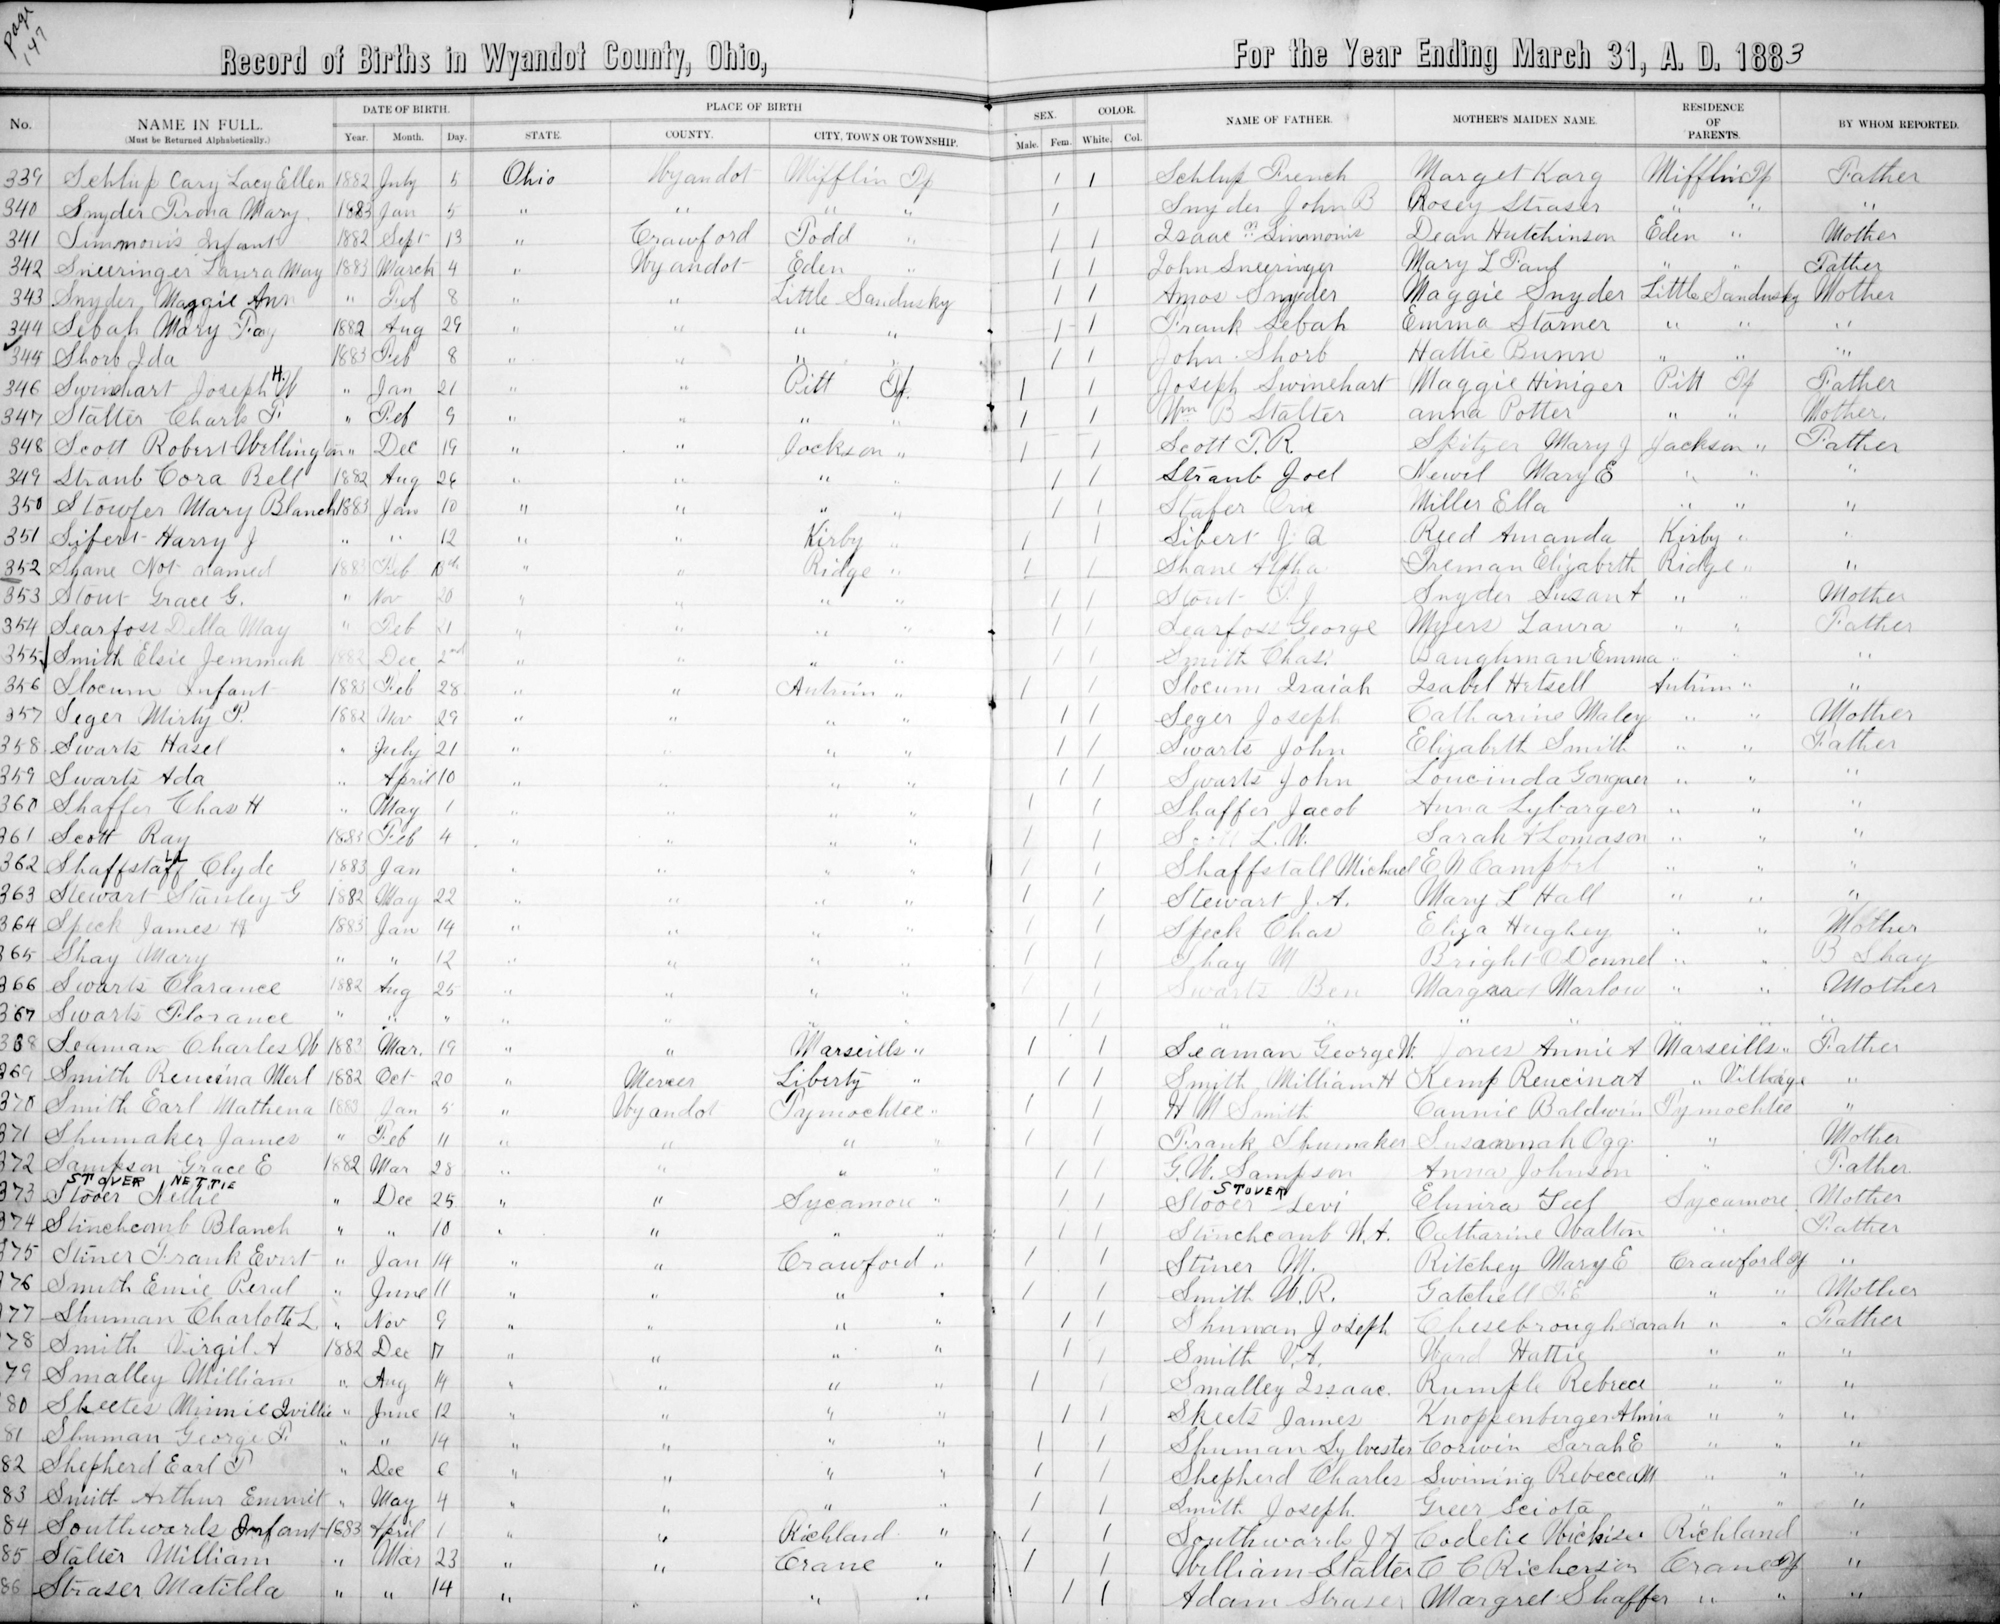 page 147
Record of Births in Wyandot County, Ohio, For the Year Ending March 31, A. D. 1883
No. NAME IN FULL. (Must be Returned Alphabetically.) DATE OF BIRTH. Year. Month. Day. PLACE OF BIRTH STATE. COUNTY. CITY, TOWN OR TOWNSHIP. SEX. Male. Fem. COLOR. White. Col. NAME OF FATHER. MOTHER'S MAIDEN NAME. RESIDENCE OF PARENTS. BY WHOM REPORTED.
339 Schlup Cary Lacy Ellen 1882 July 5 Ohio Wyandot Mifflin Tp 1 1 Schlup French Marget Karg Mifflin Tp Father
340 Snyder Mary 1883 Jan 5 " " " " 1 Snyder John B Rosey Straser " " "
341 Simmonis Infant 1882 Sept 13 " Crawford Todd " 1 1 Isaac Simmonis Dean Hutchinson Eden " Mother
342 Sneeringer Laura May 1883 March 4 " Wyandot Eden " 1 1 John Sneeringer Mary L Paul " " Father
343 Snyder Maggie Ann " Feb 8 " " Little Sandusky 1 1 Amos Snyder Maggie Snyder Little Sandusky Mother
344 Sebah Mary Fay 1882 Aug 29 " " " " 1 1 Frank Sebah Emma Starner " " "
345 Shorb Ida 1883 Feb 8 " " " " 1 1 John Shorb Hattie Bunn " " "
346 Swinehart Joseph H. " Jan 21 " " Pitt Tp. 1 1 Joseph Swinehart Maggie Hiniger Pitt Tp Father
347 Stalter Charls F " Feb 9 " " " " 1 1 Wm B Stalter anna Potter " " Mother
348 Scott Robert Wellington " Dec 19 " " Jackson " 1 1 Scott T. R. Spitzer Mary J Jackson " Father
349 Straub Cora Bell 1882 Aug 26 " " " " 1 1 Straub Joel Newel Mary E " " "
350 Stowfer Mary Blanch 1883 Jan 10 " " " " 1 1 Stafer Orn Miller Ella " " "
351 Sifert Harry J " " 12 " " Kirby " 1 1 Sibert J. A Reed Amanda Kirby " "
352 Shane Not named 1883 Feb " " Ridge " 1 1 Shane Alpha Freman Elizabeth Ridge " "
353 Stout Grace G. " Nov 20 " " " " 1 1 Stout F J Snyder Susan A " " Mother
354 Searfoss Della May " Feb 1 " " " " 1 1 Searfoss George Myers Laura " " Father
355 Smith Elsie Jemmah 1882 Dec 2nd " " " " 1 1 Smith Chas. Baughman Emma " " "
356 Slocum Infant 1883 Feb 28 " " Antrim " 1 1 Slocum Isaiah Isabel Hetsell Antrim " "
357 Seger Mirty P. 1882 Nov 29 " " " " 1 1 Seger Joseph Catharine Maley " " Mother
358 Swarts Hasel " July 21 " " " " 1 1 Swarts John Elizabeth Smith " " Father
359 Swarts Ada " April 10 " " " " 1 1 Swarts John Loucinda " " "
360 Shaffer Chas H " May 1 " " " " 1 1 Shaffer Jacob Anna Lybarger " " "
361 Scott Ray 1883 Feb 4 " " " " 1 1 Scott L. W. Sarah A Lomason " " "
362 Shaffstall Clyde 1883 Jan " " " " 1 1 Shaffstall Michael E N Campbel " " "
363 Stewart Stanley G 1882 May 22 " " " " 1 1 Stewart J. A. Mary L Hall " " "
364 Speck James H 1883 Jan 14 " " " " 1 1 Speck Chas Eliza Hughey " " Mother
365 Shay Mary " " 12 " " " " 1 1 Shay M Bright O Dennel " " B Shay
366 Swarts Clarance 1882 Aug 25 " " " " 1 1 Swarts Ben Margaret Marlow " " Mother
367 Swarts Florance " " " " " " " 1 1 " " " " " " "
368 Seaman Charles W 1883 Mar. 19 " " Marseills " 1 1 Seaman George W. Jones Annie A Marseills " Father
369 Smith Rencina Merl 1882 Oct 20 " Mercer Liberty " 1 1 Smith William H Kemp Rencina A " Village "
370 Smith Earl Mathena 1883 Jan 5 " Wyandot Tymochtee " 1 1 H M Smith Cannie Baldwin Tymochtee "
371 Shumaker James " Feb 11 " " " " 1 1 Frank Shumaker Susannah Ogg " Mother
372 Sampson Grace E 1882 Mar 28 " " " " 1 1 G. W. Sampson Anna Johnson " Father
STOVER NETTIE STOVER
373 Stover Nettie " Dec 25 " " Sycamore " 1 1 Stover Levi Elmira Sycamore Mother
374 Stinchcomb Blanch " " 10 " " " " 1 1 Stinchcomb W. A. Catharine Walton " Father
375 Stiner Frank Evert " Jan 14 " " Crawford " 1 1 Stiner M. Ritchey Mary E Crawford Tp "
376 Smith Emie Perul " June 11 " " " " 1 1 Smith W. R. Gatchell F E " " Mother
377 Shuman Charlotte L " Nov 9 " " " " 1 1 Shuman Joseph Chesebrough Sarah " " Father
378 Smith Virgil A 1882 Dec 7 " " " " 1 1 Smith V. A. Ward Hattie " " "
79 Smalley William " Aug 14 " " " " 1 1 Smalley Issaac. Rumple Rebrece " " "
80 Skeetes Minnie " June 12 " " " " 1 1 Skeets James Knoppenberger Almira " " "
81 Shuman George F " " 14 " " " " 1 1 Shuman Sylvester Corwin Sarah E " " "
82 Shepherd Earl P " Dec 6 " " " " 1 1 Shepherd Charles Swining Rebecca M " " "
83 Smith Arthur Emmit " May 4 " " " " 1 1 Smith Joseph. Greer Sciota " " "
84 Southwards Infant 1883 April 1 " " Richland " 1 1 Southward J A Codelie Richland "
85 Stalter William " Mar 23 " " Crane " 1 1 William Stalter C C Richerson Crane Tp "
86 Straser Matilda " " 14 " " " " 1 1 Adam Straser Margret Shaffer " " "